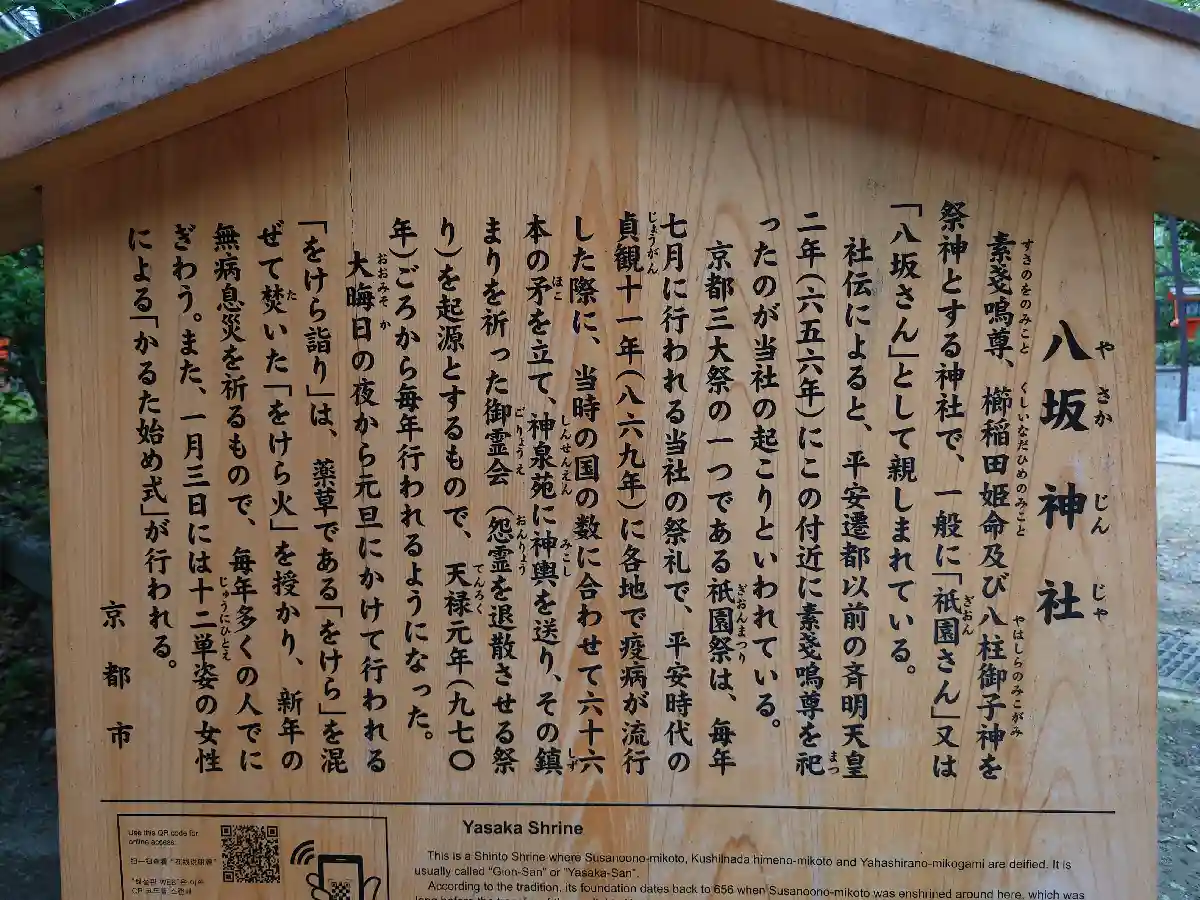 八坂神社
やさかじんじゃ
素戔嗚尊、櫛稲田姫命及び八柱御子神を
すさのをのみこと くしいなだひめのみこと やはしらのみこがみ
祭神とする神社で、一般に「祇園さん」又は
ぎおん
「八坂さん」として親しまれている。
社伝によると、平安遷都以前の斉明天皇
二年(六五六年)にこの付近に素戔嗚尊を祀
まつ
ったのが当社の起こりといわれている。
京都三大祭の一つである祇園祭は、毎年
ぎおんまつり
七月に行われる当社の祭礼で、平安時代の
貞観十一年(八六九年)に各地で疫病が流行
じょうがん
した際に、当時の国の数に合わせて六十六
本の矛を立て、神泉苑に神輿を送り、その鎮
ほこ しんせんえん みこし しず
まりを祈った御霊会(怨霊を退散させる祭
ごりょうえ おんりょう
り)を起源とするもので、天禄元年(九七〇
てんろく
年)ごろから毎年行われるようになった。
大晦日の夜から元旦にかけて行われる
おおみそか
「をけら詣り」は、薬草である「をけら」を混
ぜて焚いた「をけら火」を授かり、新年の
た
無病息災を祈るもので、毎年多くの人でに
ぎわう。また、一月三日には十二単姿の女性
じゅうにひとえ
による「かるた始め式」が行われる。
京都市
Use this QR code for
online access.
Yasaka Shrine
This is a Shinto Shrine where Susanoono-mikoto, Kushilnada himeno-mikoto and Yahashirano-mikogami are deified. It is
usually called "Gion-San" or "Yasaka-San".
According to the tradition, its foundation dates back to 656 when Susanoono-mikoto was enshrined around here, which was